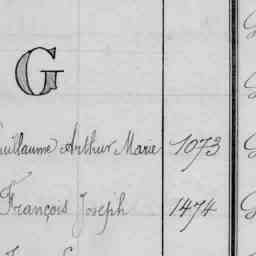 G
Guillaume Arthur Marie 1073
François Joseph 1474